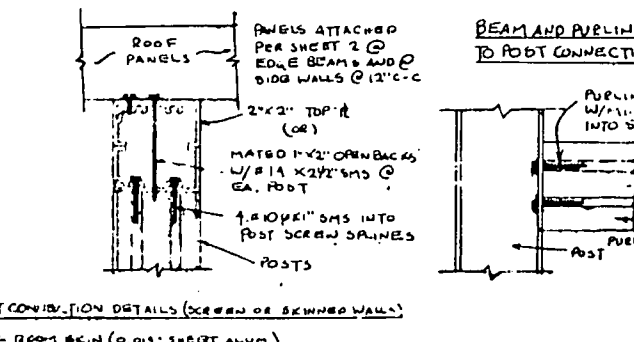 ROOF
PANELS
PANELS ATTACHED
PER SHEET 2 @
EDGE BEAMS AND @
SIDE WALLS @ 12" C-C
2"X2" TOP PL
(OR)
MATED 1"X2" OPEN BACKS
W/ #14 X 2½" SMS @
EA. POST
4.#10 X 1" SMS INTO
POST SCREW SPLINES
POSTS
BEAM AND PURLIN
TO POST CONNECTI
PURLIN
W/
INTO S
POST
PURL
DETAILS (SCREEN OR SKINNED WALLS)
ROOF SKIN (0.019" SHEET ALUM)